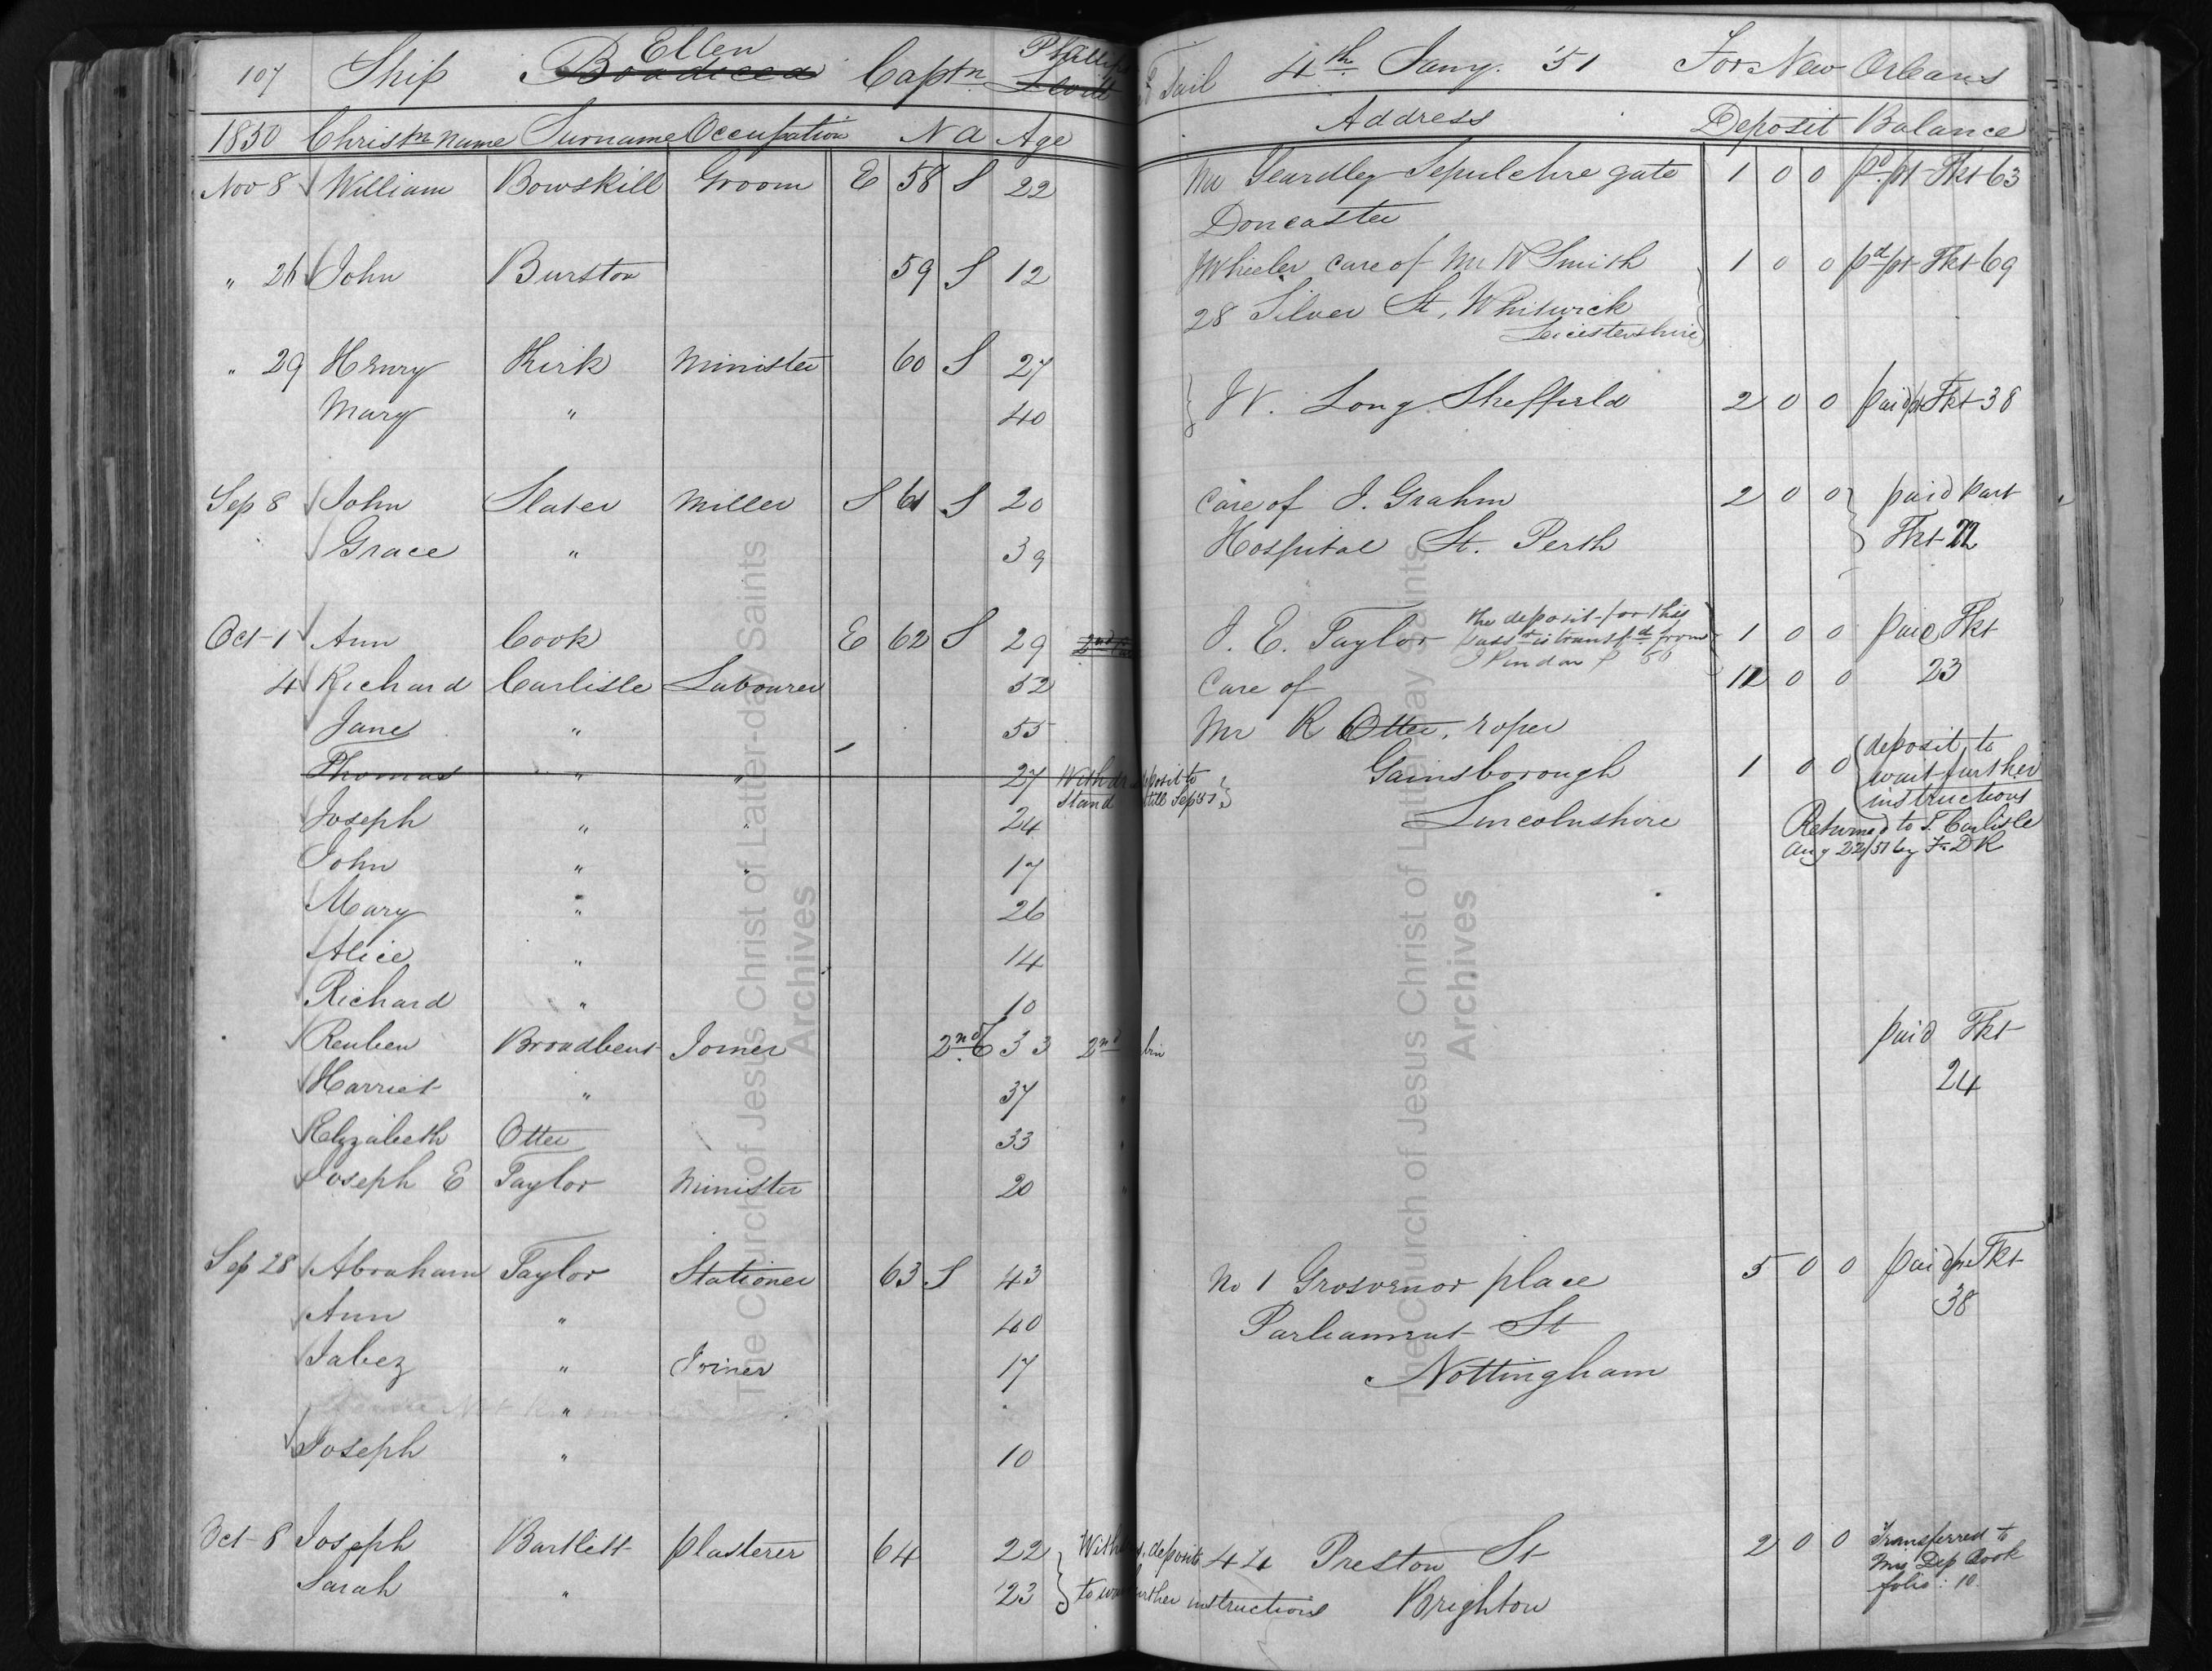 107 Ship Boadicea Ellen Captn Phillips To Sail 4th Jany. '51 For New Orleans
1850 Christn Name Surname Occupation No Age Address Deposit Balance
Nov 8 William Bowskill Groom E 58 S 22 Mr Yeardley Sepulchre gate 1 0 0 pd pt Tkt 63
Doncaster
" 26 John Burston 59 S 12 J Wheeler care of Mr W Smith 1 0 0 pd pt Tkt 69
28 Silver St, Whitwick
Leicestershire
" 29 Henry Kirk Minister 60 S 27
Mary " 40 W. Long Sheffield 2 0 0 paid pt Tkt 38
Sep 8 John Slater Miller S 61 S 20 Care of J. Grahm 2 0 0 paid part
Grace " 39 Hospital St. Perth Tkt 22
Oct 1 Ann Cook E 62 S 29 J. E. Taylor the deposit for this 1 0 0 paid Tkt
passr is transfd from
J Pindar P 50
4 Richard Carlisle Labourer 52 Care of 0 0 23
Jane " 55 Mr R Otter, roper
Thomas " " 27 Withdrn deposit to Gainsborough 1 0 0 deposit to
stand till Sep 51 wait further
instructions
Joseph " " 24 Lincolnshire Returned to T. Carlisle
Aug 22/51 by
John " " 17
Mary " 26
Alice " 14
Richard " 10
Reuben Broadbent Joiner 2nd C 33 2nd bin paid Tkt
Harriet " 37 24
Elizabeth Otter 33
Joseph E Taylor Minister 20
Sep 28 Abraham Taylor Stationer 63 S 43 No 1 Grosvenor place 5 0 0 paid pt Tkt
Ann " 40 Parliament St 38
Jabez " Joiner 17 Nottingham
"
Joseph " 10
Oct 8 Joseph Bartlett plasterer 64 22 Withdrns, deposit 44 Preston St 2 0 0 Transferred to
Sarah " 23 to wait further instructions Brighton Dep Book
folio: 10.
The Church of Jesus Christ of Latter-day Saints
Archives
The Church of Jesus Christ of Latter-day Saints
Archives